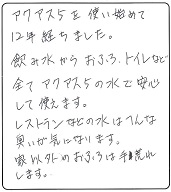 アクアス5を使い始めて
12年経ちました。
飲み水からおふろ、トイレなど
全てアクアス5の水で安心
して使えます。
レストランなどの水はへんな
臭いが気になります。
家以外のおふろは手荒れ
します。